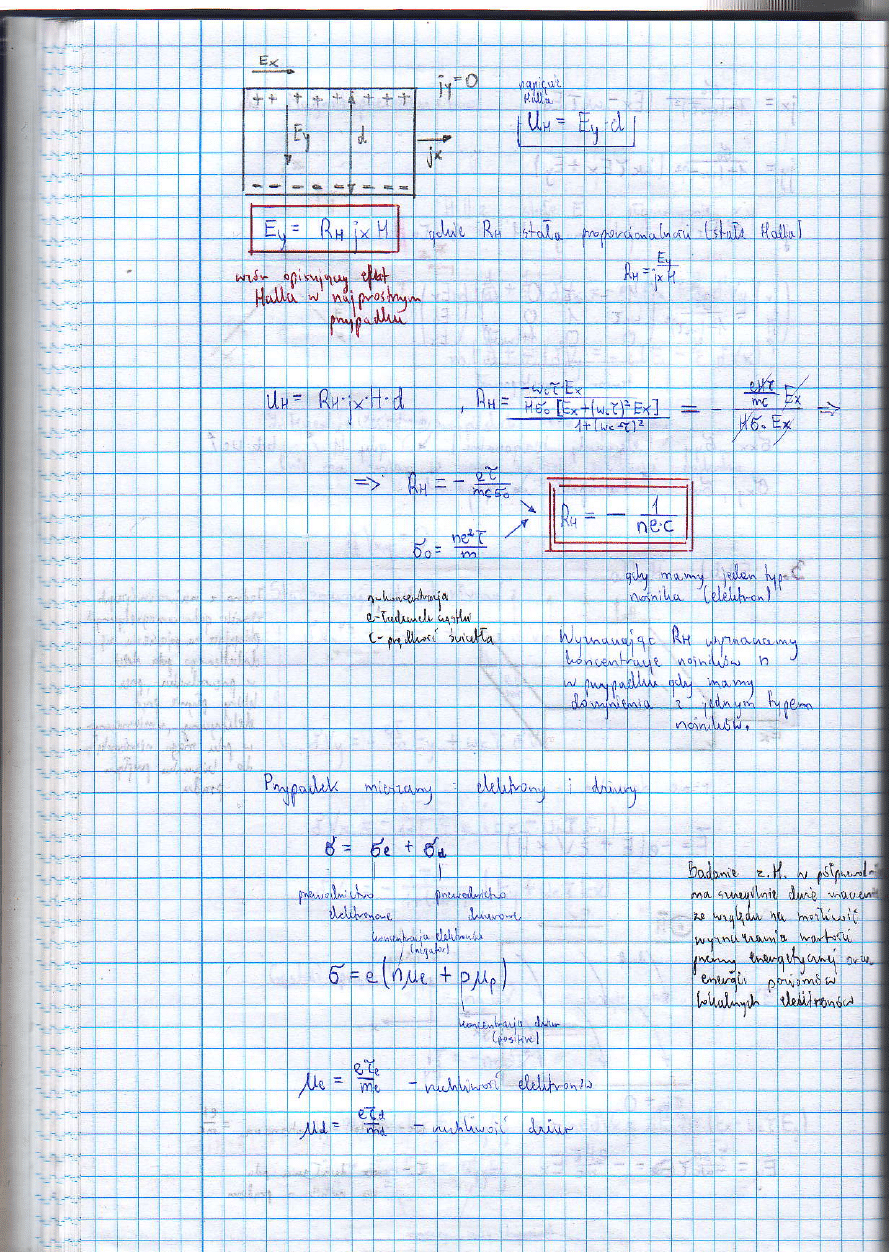 Ex
jy = 0
napięcie
Halla
UH = Ey · d
+ + + + + + + + +
Ey
d
jx
- - - - - - - - -
Ey = RH jx H gdzie RH stała proporcjonalności (stała Halla)
RH = Ey / jx H
wzór opisujący efekt
Halla w najprostszym
przypadku
UH = RH · jx · H · d , RH = (-ωcτ Ex) / (Hσ₀ [Ex + (ωcτ)² Ex] / 1 + (ωcτ)²) = - (eHτ / mc Ex) / (Hσ₀ Ex) ⇒
⇒ RH = - eτ / mcσ₀
σ₀ = ne²τ / m
RH = - 1 / ne·c
gdy mamy jeden typ
nośnika (elektron)
n - koncentracja
e - ładunek cząstki
c - prędkość światła
Wyznaczając RH wyznaczamy
koncentrację nośników n
w przypadku gdy mamy
do czynienia z jednym typem
nośników.
Przypadek mieszany : elektrony i dziury
σ = σe + σd
przewodnictwo
elektronowe
przewodnictwo
dziurowe
koncentracja elektronów
(negativ)
σ = e(nμe + pμp)
koncentracja dziur
(positive)
Badanie z.H. w
ma szczególnie duże
ze względu na możliwość
wyznaczania wartości
przerwy energetycznej oraz
energii poziomów
lokalnych elektronów
μe = eτe / me - ruchliwość elektronów
μd = eτd / md - ruchliwość dziur